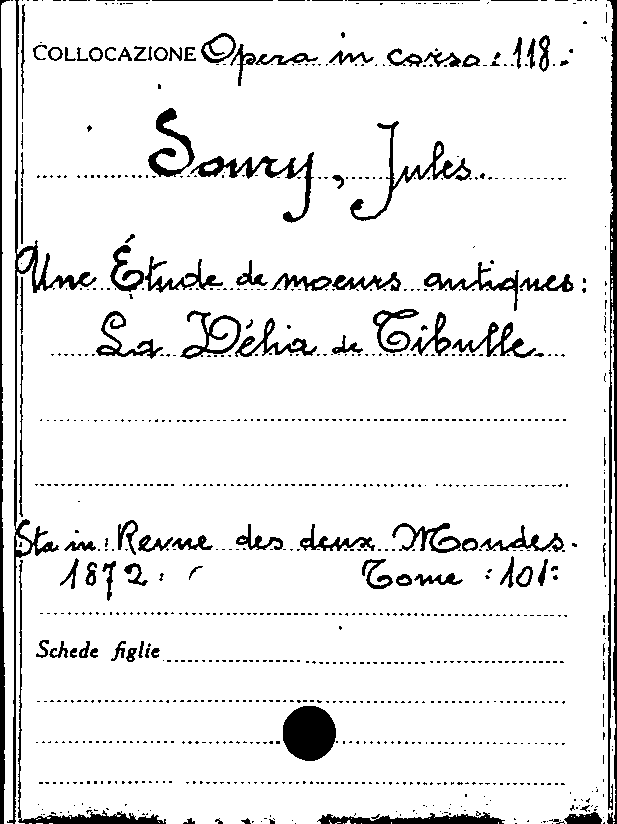 COLLOCAZIONE Opera in corso : 118.
Soury, Jules.
Une Étude de moeurs antiques :
La Délia de Tibulle.
Sta in : Revue des deux Mondes.
1872. Tome : 101:
Schede figlie